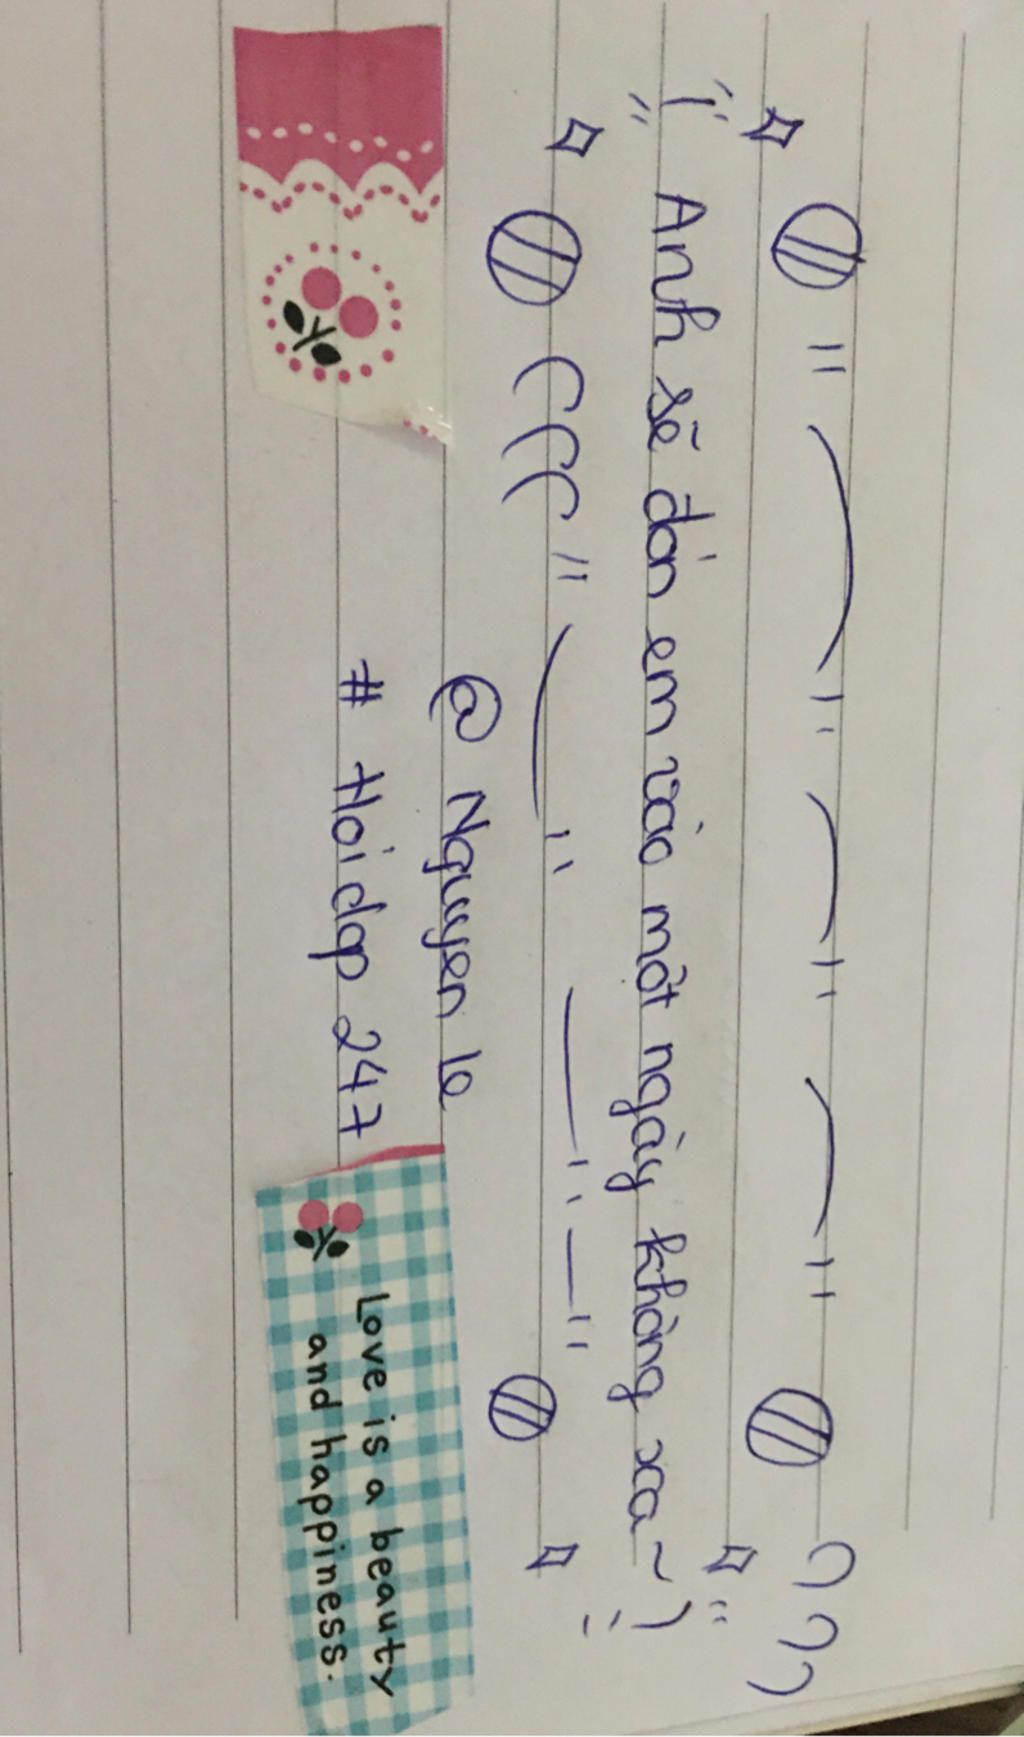 Anh sẽ đón em vào một ngày không xa ~
@ Nguyen le
# Hoidap 247
Love is a beauty
and happiness.